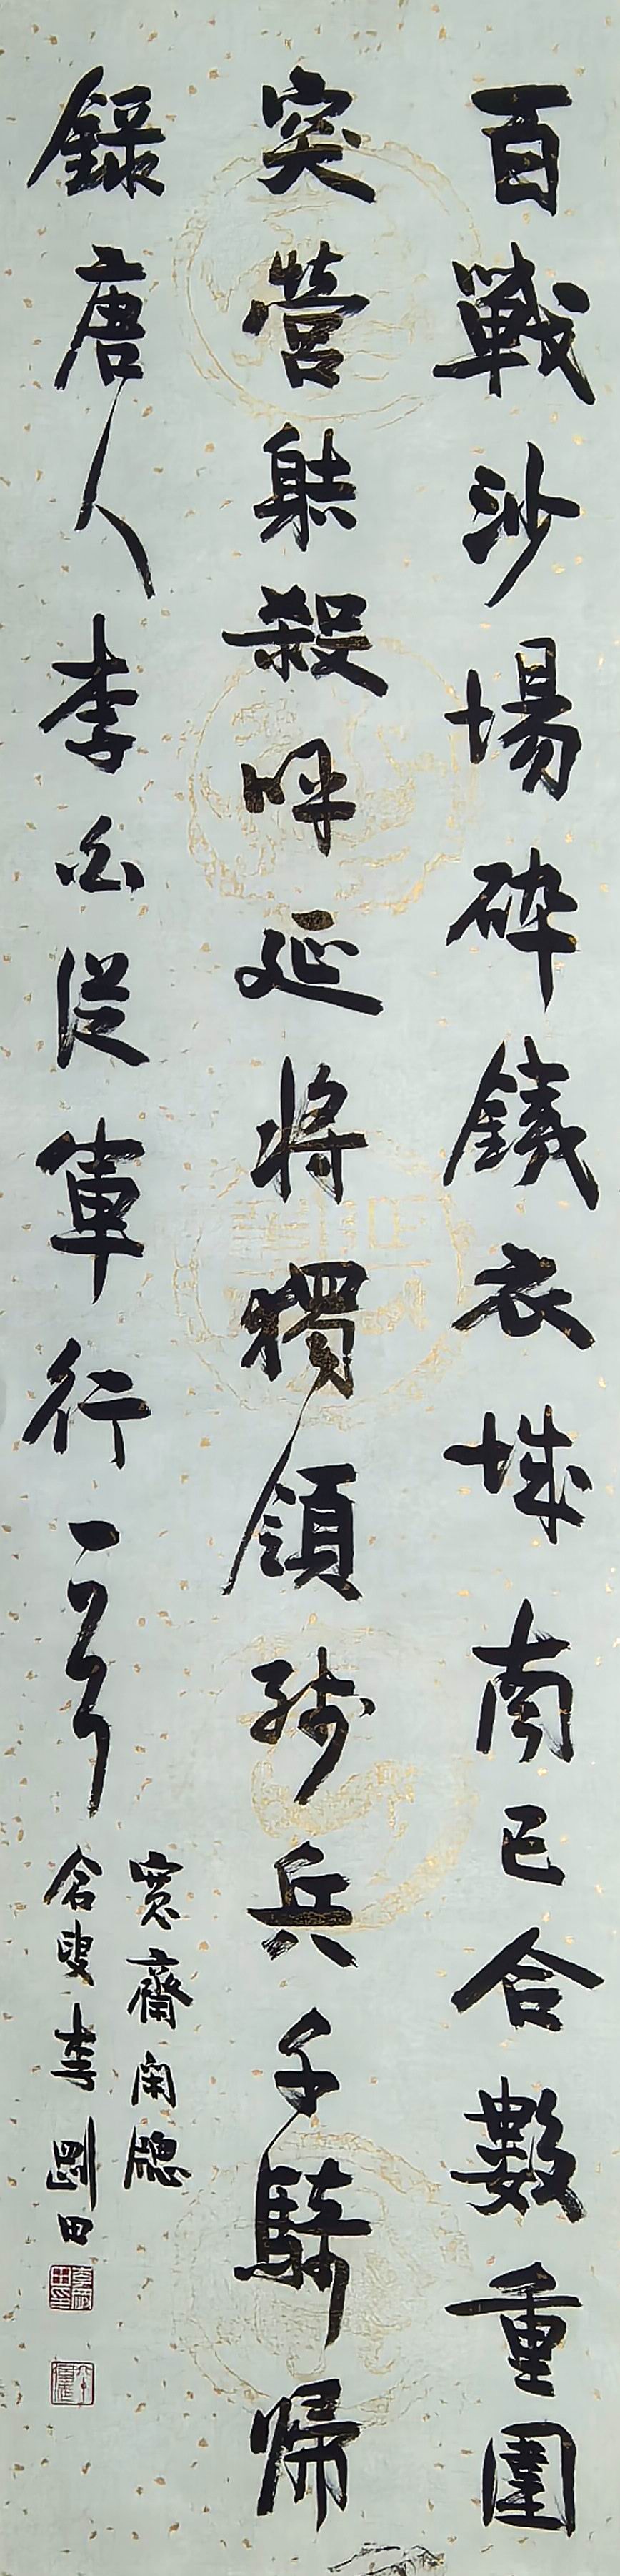 百戰沙場碎鐵衣城南已合數重圍
突營射殺呼延將獨領殘兵千騎歸
錄唐人李白從軍行一首
寬齋南牕
倉叟李剛田